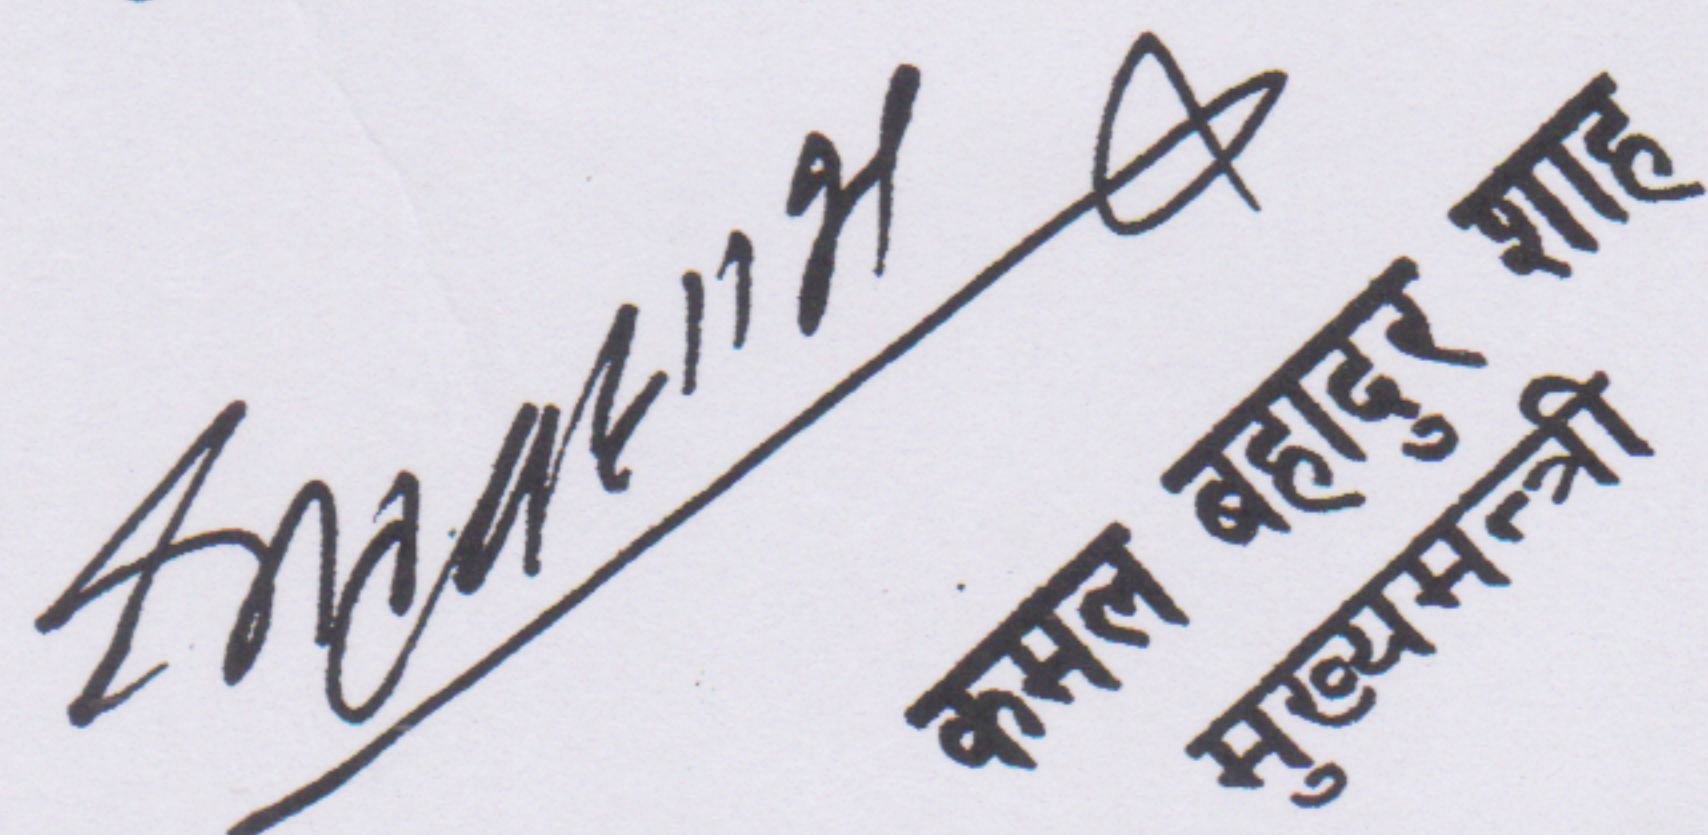 कमल बहादुर शाह
मुख्यमन्त्री